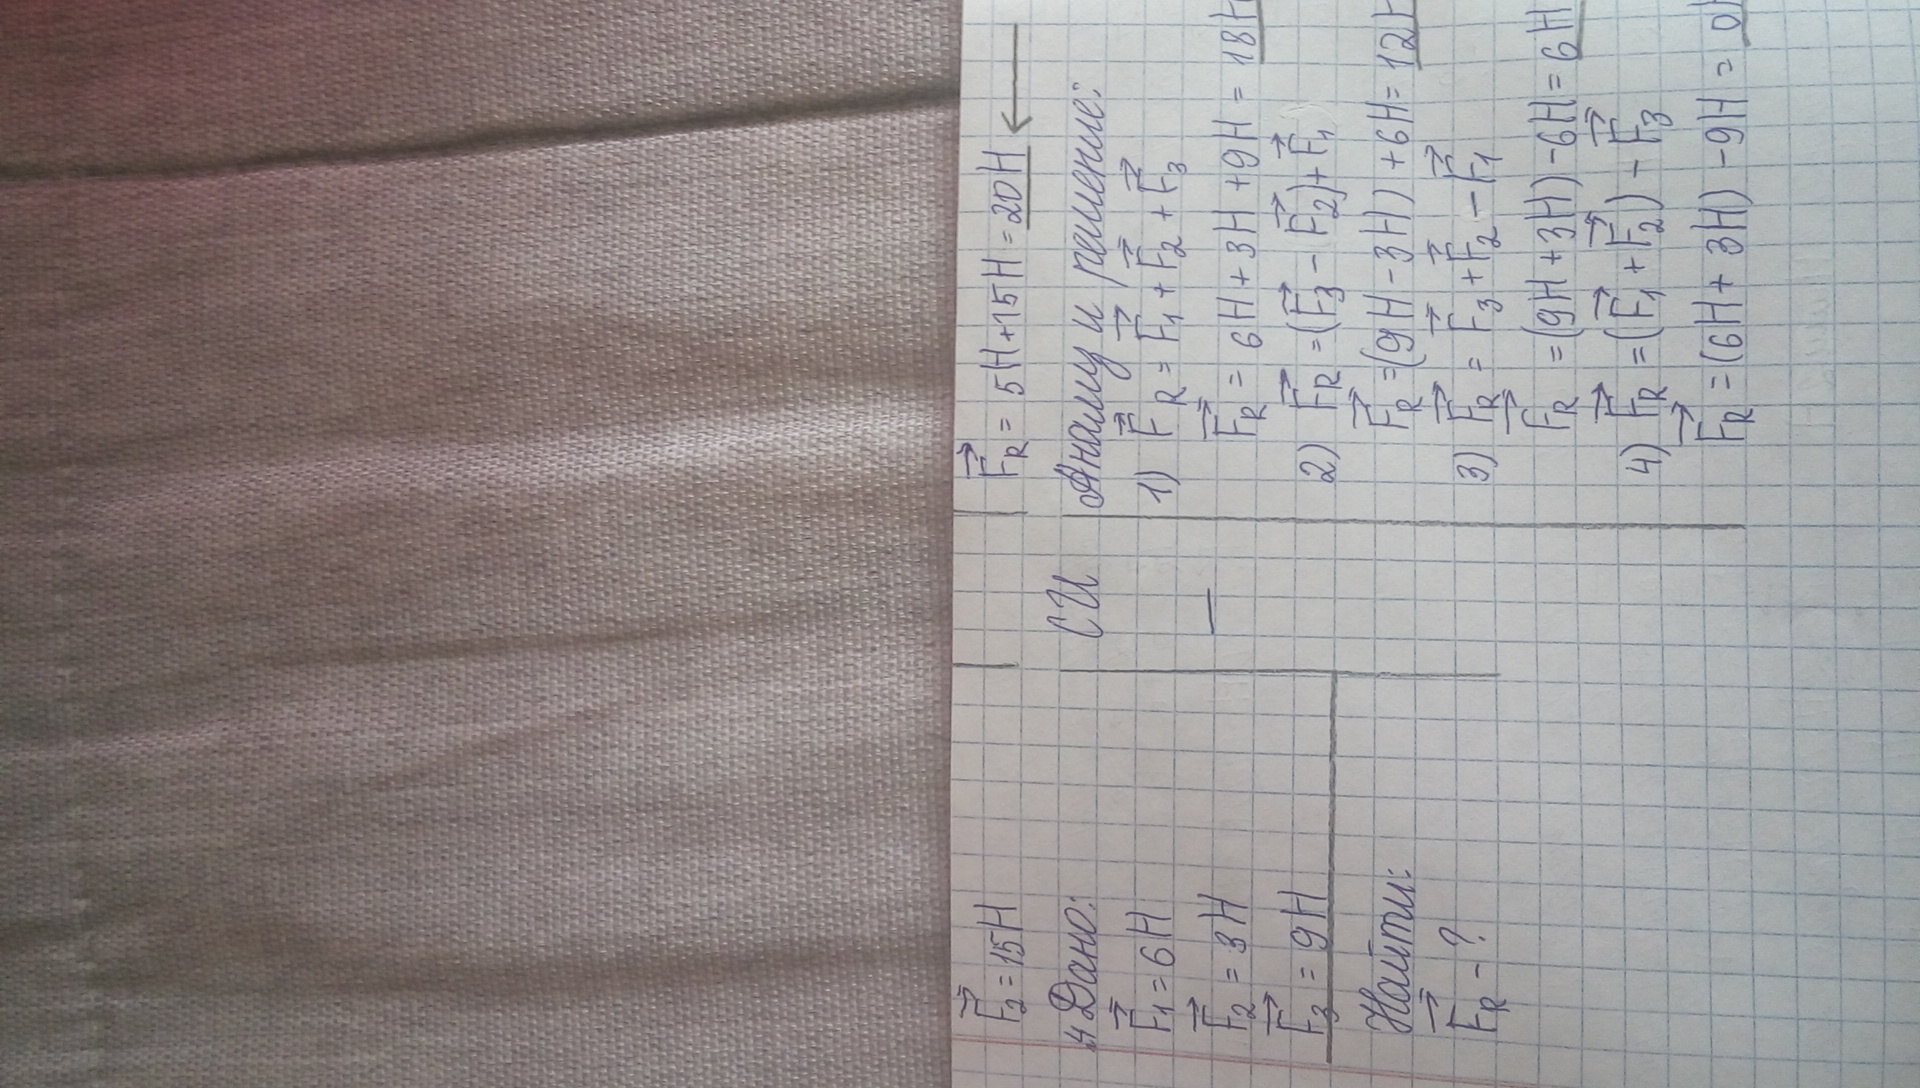 F₂ = 15Н
F_R = 5Н + 15Н = 20Н
4 Дано:
F₁ = 6Н
F₂ = 3Н
F₃ = 9Н
Найти:
F_R - ?
СИ
—
Анализ и решение:
1) F_R = F₁ + F₂ + F₃
F_R = 6Н + 3Н + 9Н = 18Н
2) F_R = (F₃ - F₂) + F₁
F_R = (9Н - 3Н) + 6Н = 12Н
3) F_R = F₃ + F₂ - F₁
F_R = (9Н + 3Н) - 6Н = 6Н
4) F_R = (F₁ + F₂) - F₃
F_R = (6Н + 3Н) - 9Н = 0Н